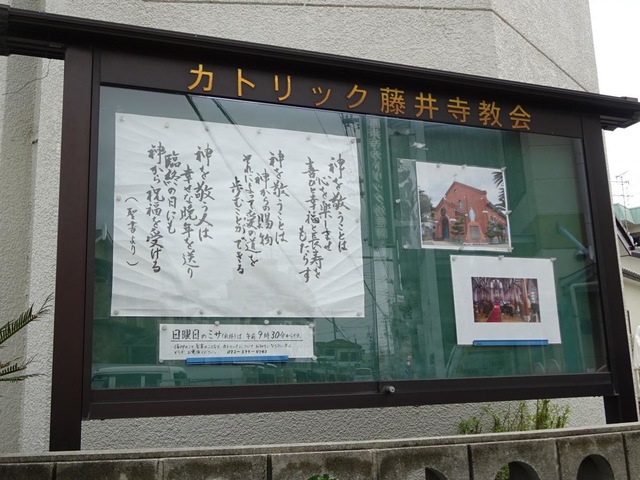 カトリック藤井寺教会
神を敬うことは
心を楽しませ
喜びと幸福と長寿を
もたらす
神を敬うことは
神からの賜物
それによって愛の道を
歩むことができる
神を敬う人は
幸せな晩年を送り
臨終の日にも
神から祝福を受ける
(聖書より)
日曜日のミサ(礼拝)は午前9時30分からです。